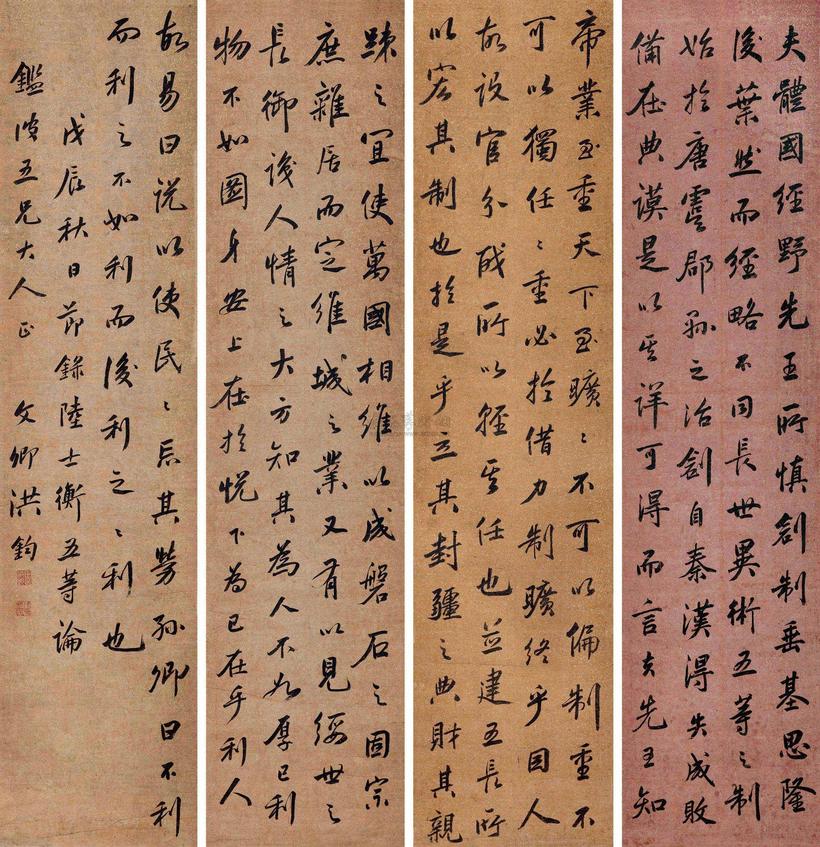 夫體國經野先王所慎創制垂基思隆
後葉然而經略不同長世異術五等之制
始於唐虞郡縣之治創自秦漢得失成敗
備在典謨是以其詳可得而言夫先王知
帝業至重天下至曠〻不可以偏制重不
可以獨任〻重必於借力制曠終乎因人
故設官分職所以輕其任也並建五長所
以宏其制也於是乎立其封疆之典財其親
踈之宜使萬國相維以成磐石之固宗
庶雜居而定維城之業又有以見綏世之
長御識人情之大方知其為人不如厚己利
物不如圖身安上在於悅下為己在乎利人
故易曰説以使民〻忘其勞孫卿曰不利
而利之不如利而後利之〻利也
戊辰秋日節錄陸士衡五等論
鑑波五兄大人正 文卿洪鈞